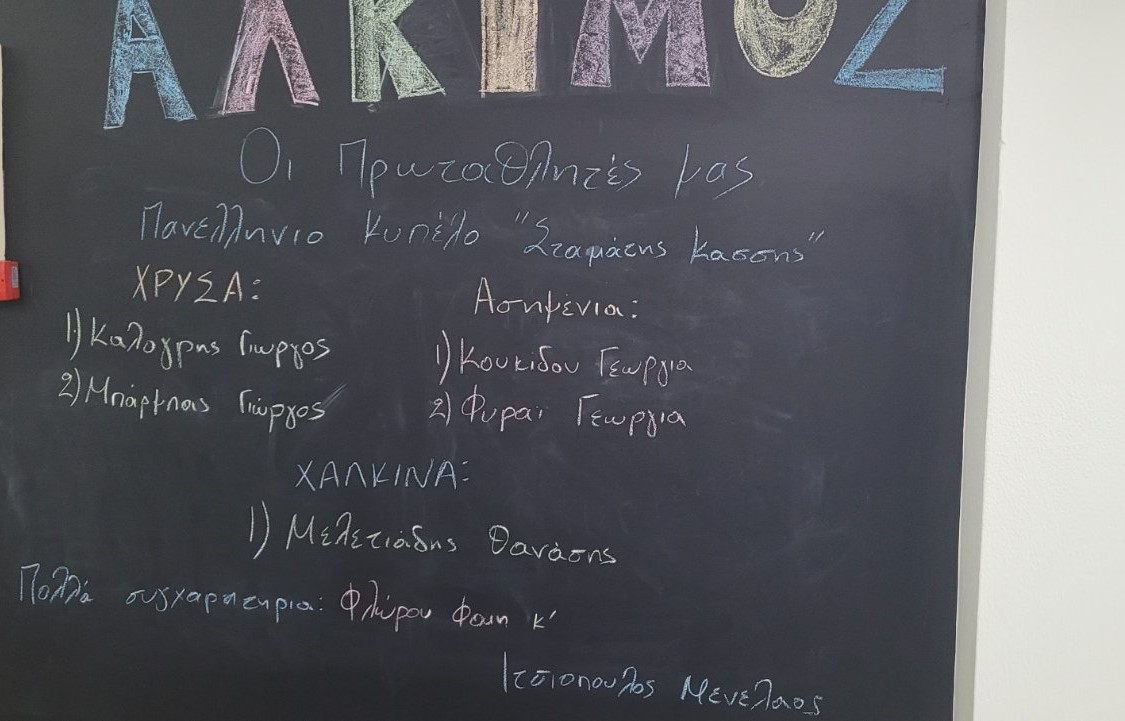 ΑΛΚΙΜΟΣ
Οι Πρωταθλητές μας
Πανελλήνιο Κυπέλο "Σταμάτης Κασσης"
ΧΡΥΣΑ:
1) Καλογρης Γιωργος
2) Μπάρμπας Γιώργος
Ασημένια:
1) Κουκιδου Γεωργία
2) Φυραί Γεωργία
ΧΑΛΚΙΝΑ:
1) Μελετιάδης Θανάσης
Πολλά συγχαρητηρια: Φλώρου Φαιη κ'
Ιτσιοπουλος Μενελαος